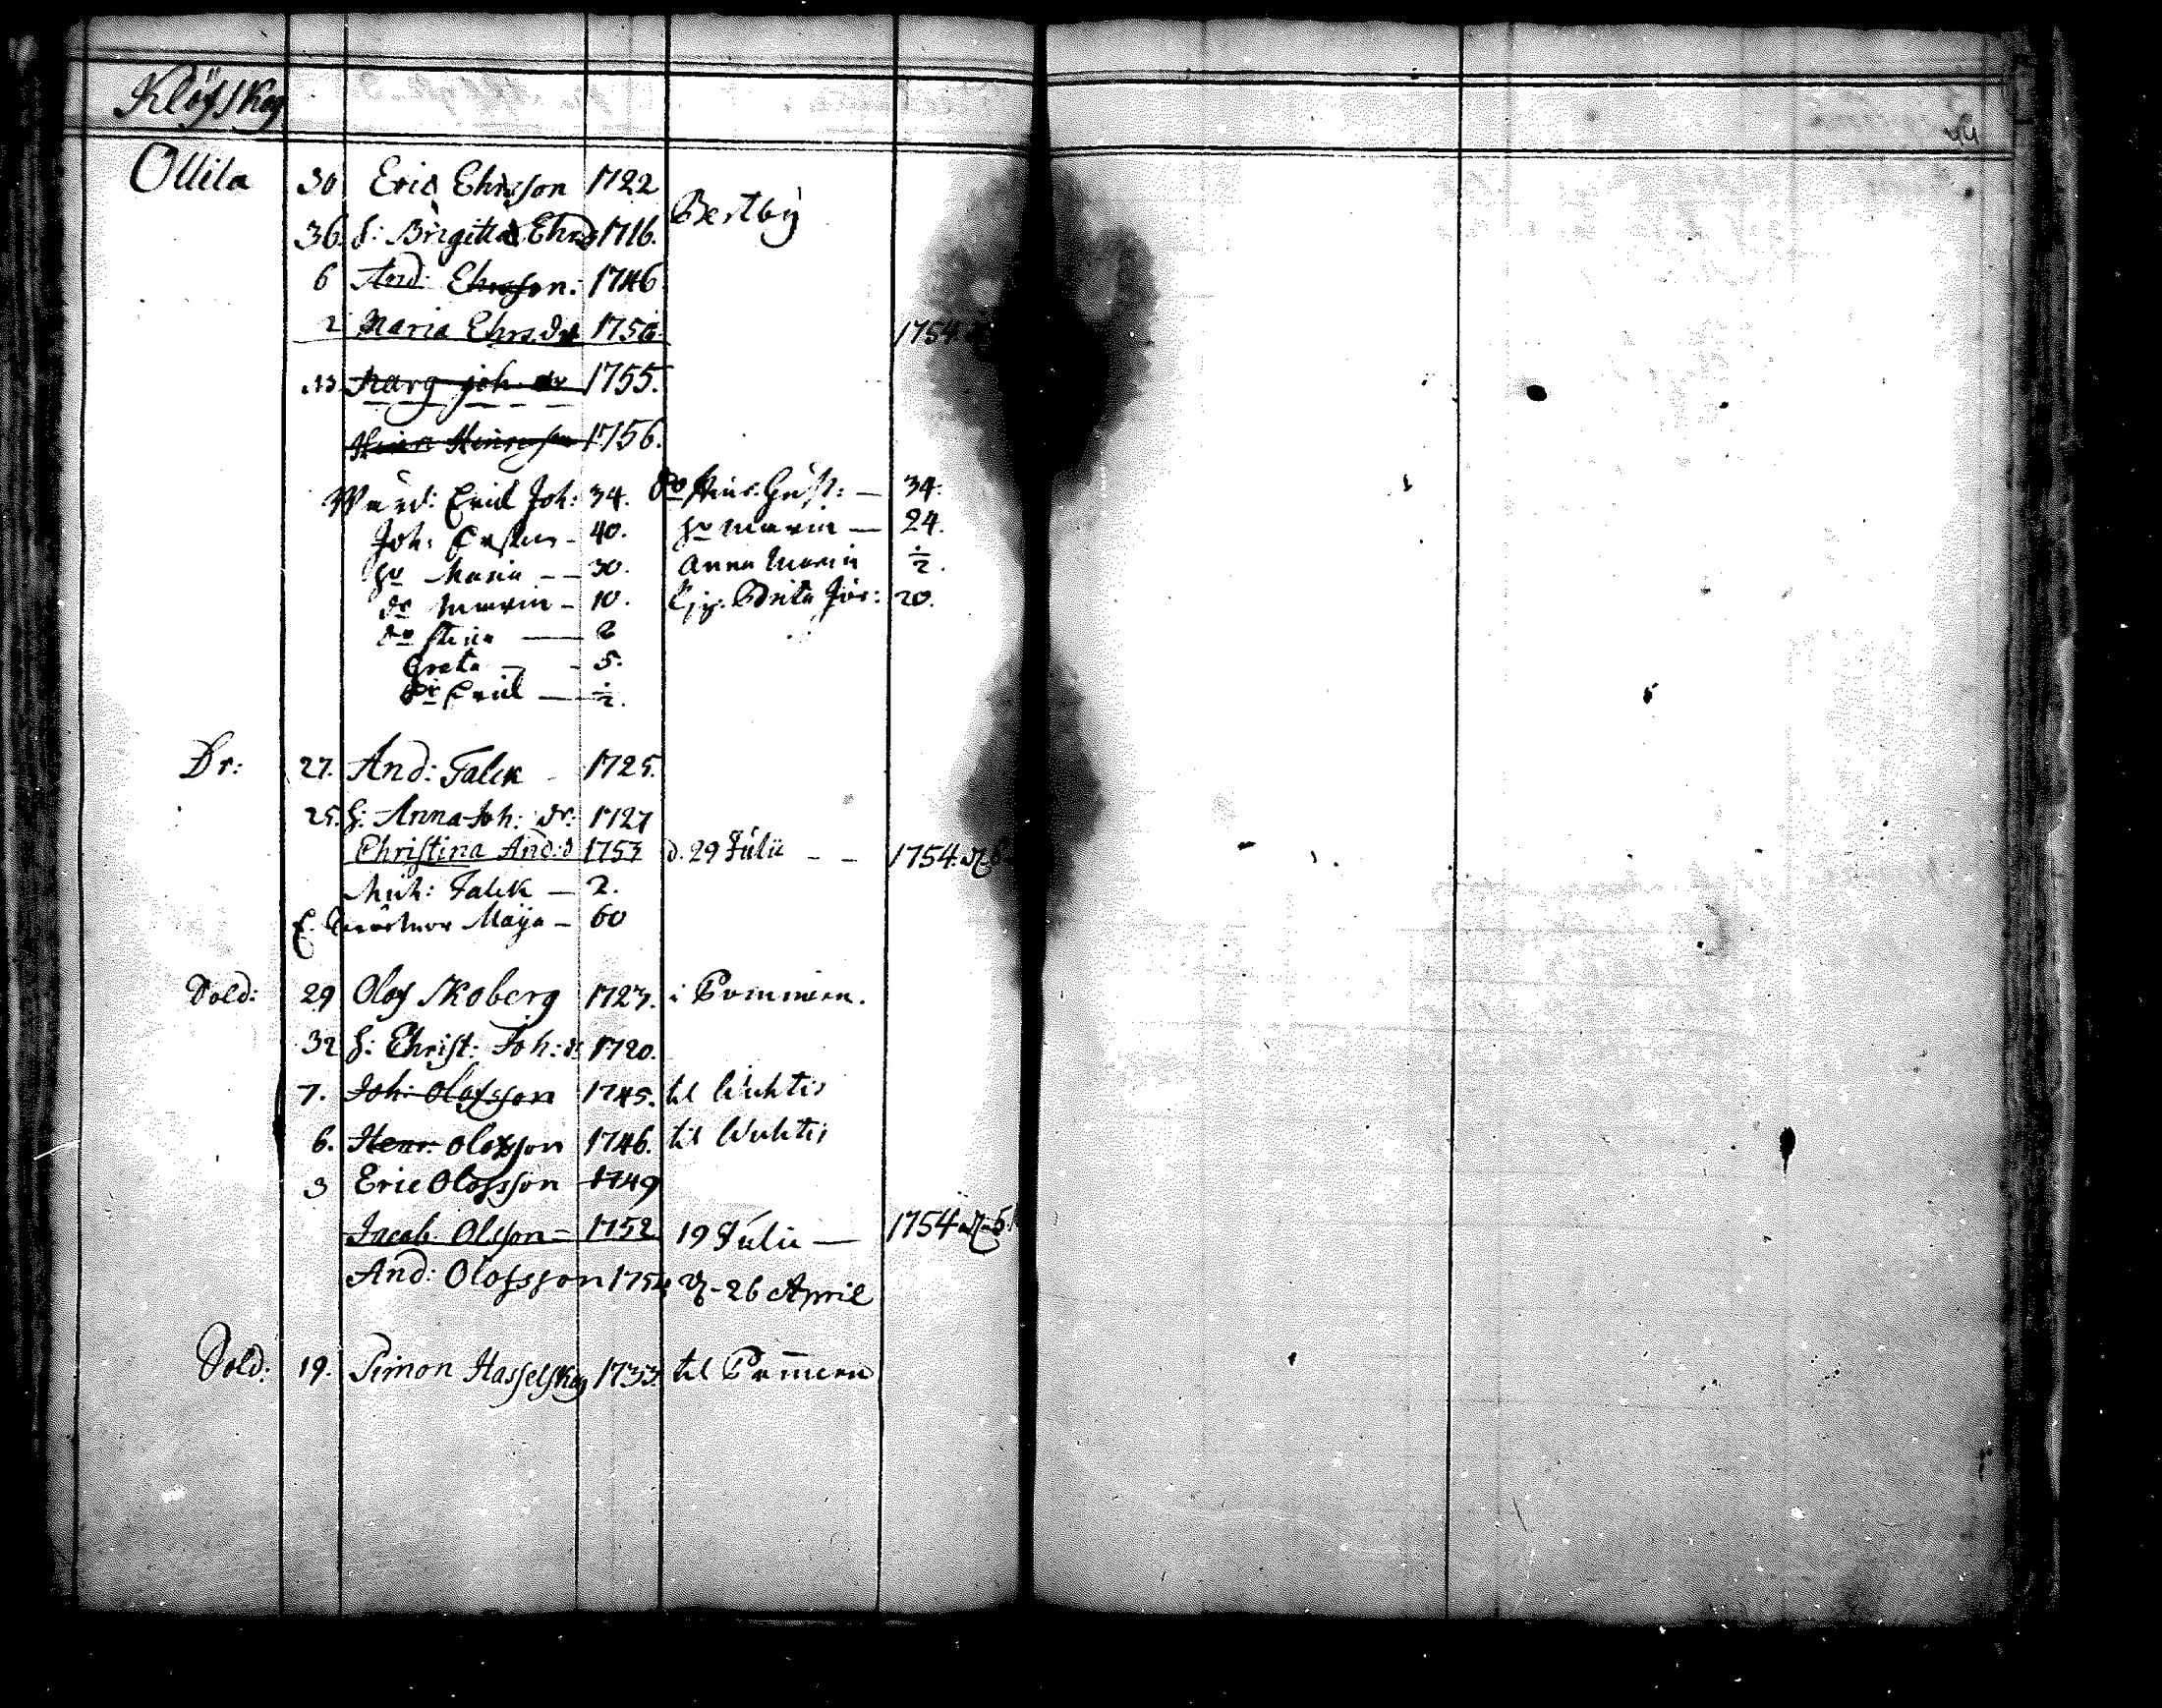 Klöfskog
Ollila 30 Eric Ehrsson 1722
Bertby
36. h: Brigitta Ehrsd 1716.
6 And: Ehrsson. 1746.
2 Maria Ehrs.dr 1750 1754.
13. Marg joh. dr 1755.
Henr Henrsson 1756.
Wärd: Erick Joh: 34. Hinr: Gust: — 34.
Joh: Ersson - 40. hu Maria — 24.
hu Maria — 30. Anna Maria ½.
dr Maria - 10. Pig. Brita Jör: 20.
dr Stina — 2
Greta — 5.
Sn Erick — ½.
Dr: 27. And: Falck 1725.
25. h: Anna Joh: dr: 1727
Christina And:d 1753 d. 29 Julii - - 1754.
Mich: Falck — 2.
Maija — 60
Sold: 29 Olof Skoberg 1723. i Pommern.
32 h: Christ: Joh: d 1720.
7. Joh: Olofsson 1745. til Wichtis
6. Henr. Olofsson 1746. til Wichtis
3 Eric Olofsson 1749
Jacob Olsson - 1752 19 Julii — 1754
And: Olofsson 1754 26 April
Sold: 19. Simon Hasselskog 1733. til Pommern